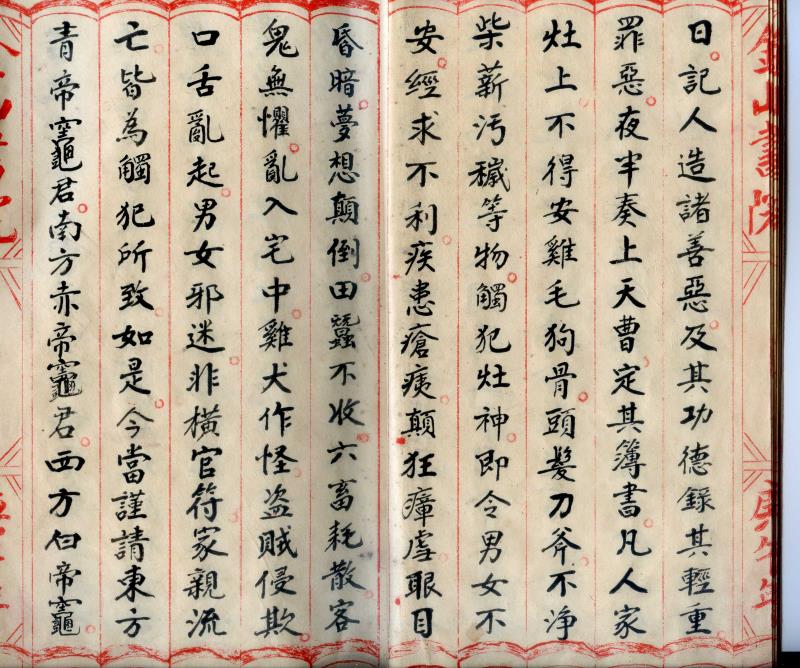 日記人造諸善惡及其功德錄其輕重
罪惡夜半奏上天曹定其簿書凡人家
灶上不得安雞毛狗骨頭髮刀斧不淨
柴薪汚穢等物觸犯灶神即令男女不
安經求不利疾患瘡痍顛狂瘴虐眼目
昏暗夢想顛倒田蠶不收六畜耗散客
鬼無懼亂入宅中雞犬作怪盜賊侵欺
口舌亂起男女邪迷非橫官符家親流
亡皆為觸犯所致如是今當謹請東方
青帝竈君南方赤帝竈君西方白帝竈